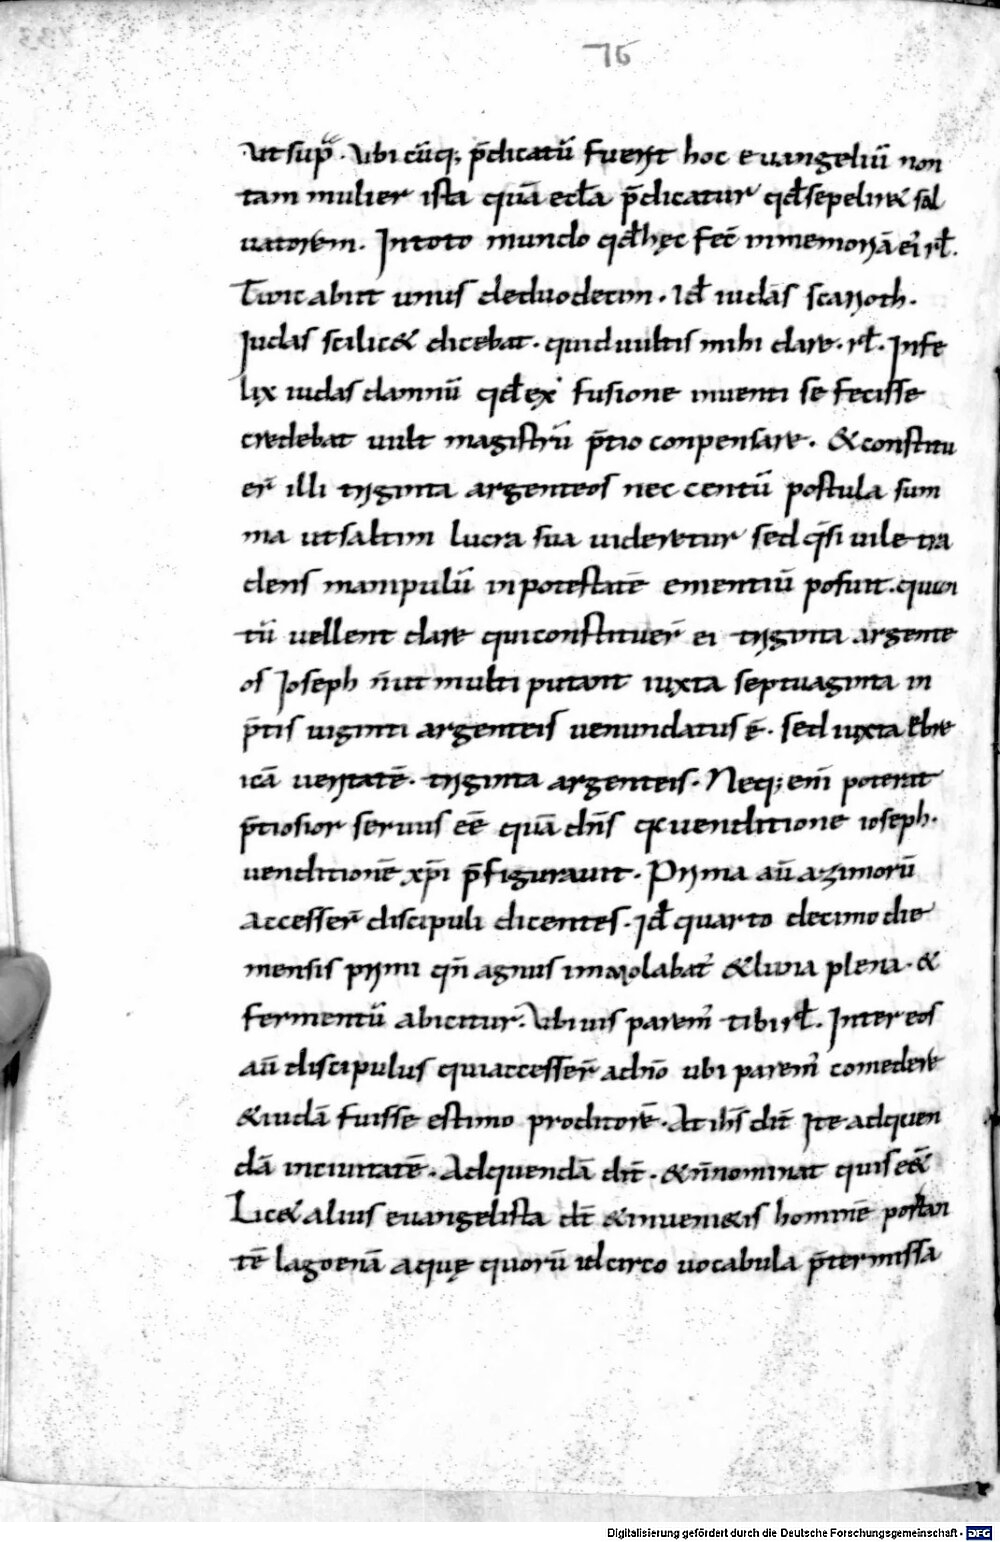 76
ut sup̄. Ubi cūq; p̄dicatū fuerit hoc euangeliū non
tam mulier ista quā eccła p̄dicatur qđ sepeliret sal
uatorem. In toto mundo qđ hęc fec̄ in memoriā ei' rł.
Tunc abiit unus de duodecim. Iđ iudas scarioth.
Iudas scilic& dicebat. quid uultis mihi dare. rł. Infe
lix iudas damnū qđ ex fusione inuenti se fecisse
credebat uult magistrū p̄tio conpensare. & constitu
er̄ illi triginta argenteos nec centū postula sum
ma ut saltim lucra sua uideretur sed q̄si uile tra
dens manipulū in potestatē ementiū posuit. quan
tū uellent dare qui constituer̄ ei triginta argente
os Ioseph n̄ ut multi putant iuxta septuaginta in
p̄tis uiginti argenteis uenundatus ē. sed iuxta ebre
icā ueritatē. triginta argenteis. Neq; eni̅ poterat
p̄tiosior seruus eē quā dn̄s uenditione ioseph.
uenditionē xp̄i p̄figurauit. Prima aū azimorū
accesser̄ discipuli dicentes. Iđ quarto decimo die
mensis primi qn̄ agnus immolabat' & luna plena. &
fermentū abicitur. Ubi uis parem' tibi rł. Inter eos
aū discipulus qui accesser̄ ad dn̄o ubi parem' comedere
& iudā fuisse estimo proditorē. At ihs̄ dix̄ Ite ad quen
dā in ciuitatē. Ad quendā dix̄. & n̄ nominat quis eēt
Lic& alius euangelista dt̄ & inueni&is hominē portan
tē lagoenā aquę quorū idcirco uocabula p̄termissa
Digitalisierung gefördert durch die Deutsche Forschungsgemeinschaft - DFG